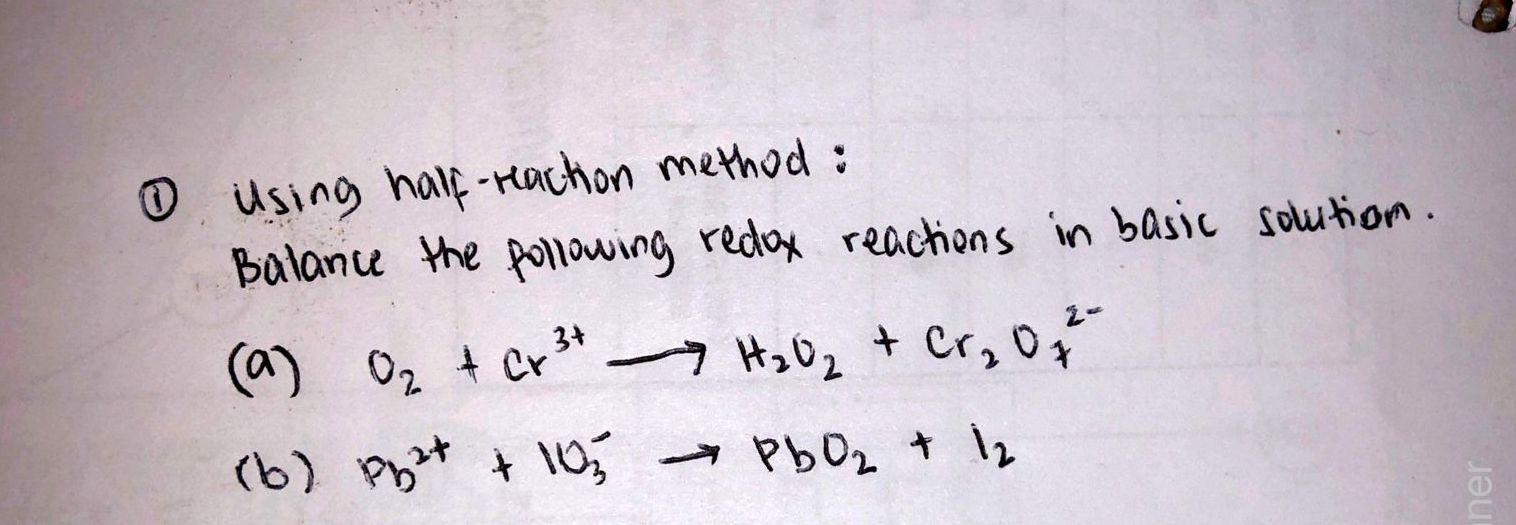 ① Using half-reaction method :
Balance the following redox reactions in basic solution.
(a) O₂ + Cr³⁺ ⟶ H₂O₂ + Cr₂O₇²⁻
(b) Pb²⁺ + IO₃⁻ → PbO₂ + I₂
ner